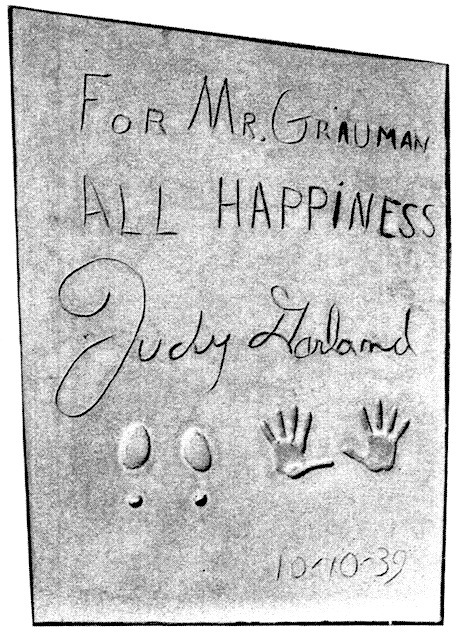 FOR MR. GRAUMAN
ALL HAPPINESS
Judy Garland
10-10-39